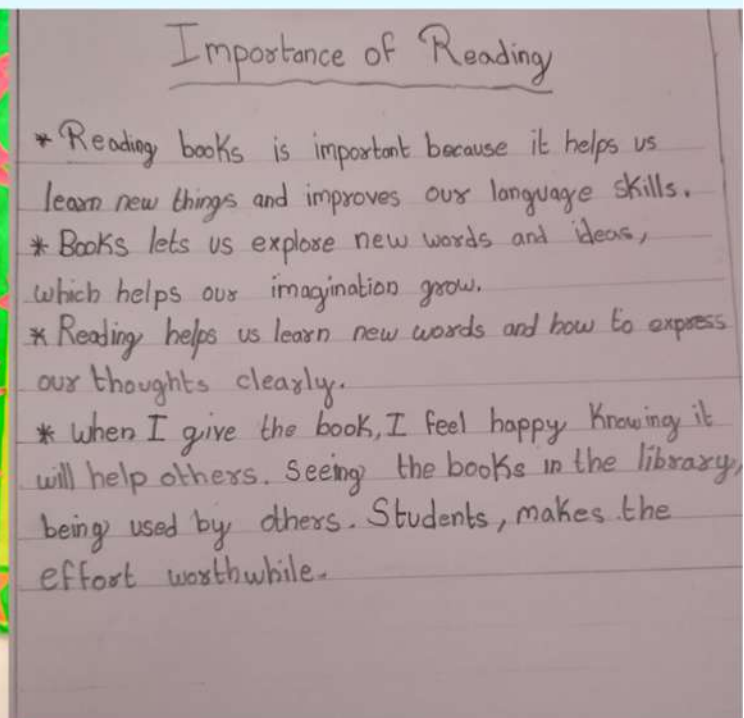 Importance of Reading
* Reading books is important because it helps us
learn new things and improves our language skills.
* Books lets us explore new words and ideas,
which helps our imagination grow.
* Reading helps us learn new words and how to express
our thoughts clearly.
* when I give the book, I feel happy Knowing it
will help others. Seeing the books in the library,
being used by others. Students, makes the
effort worthwhile.